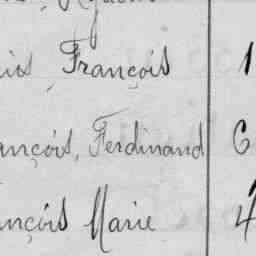 François 1
ançois, Ferdinand 6
nçois Marie 4